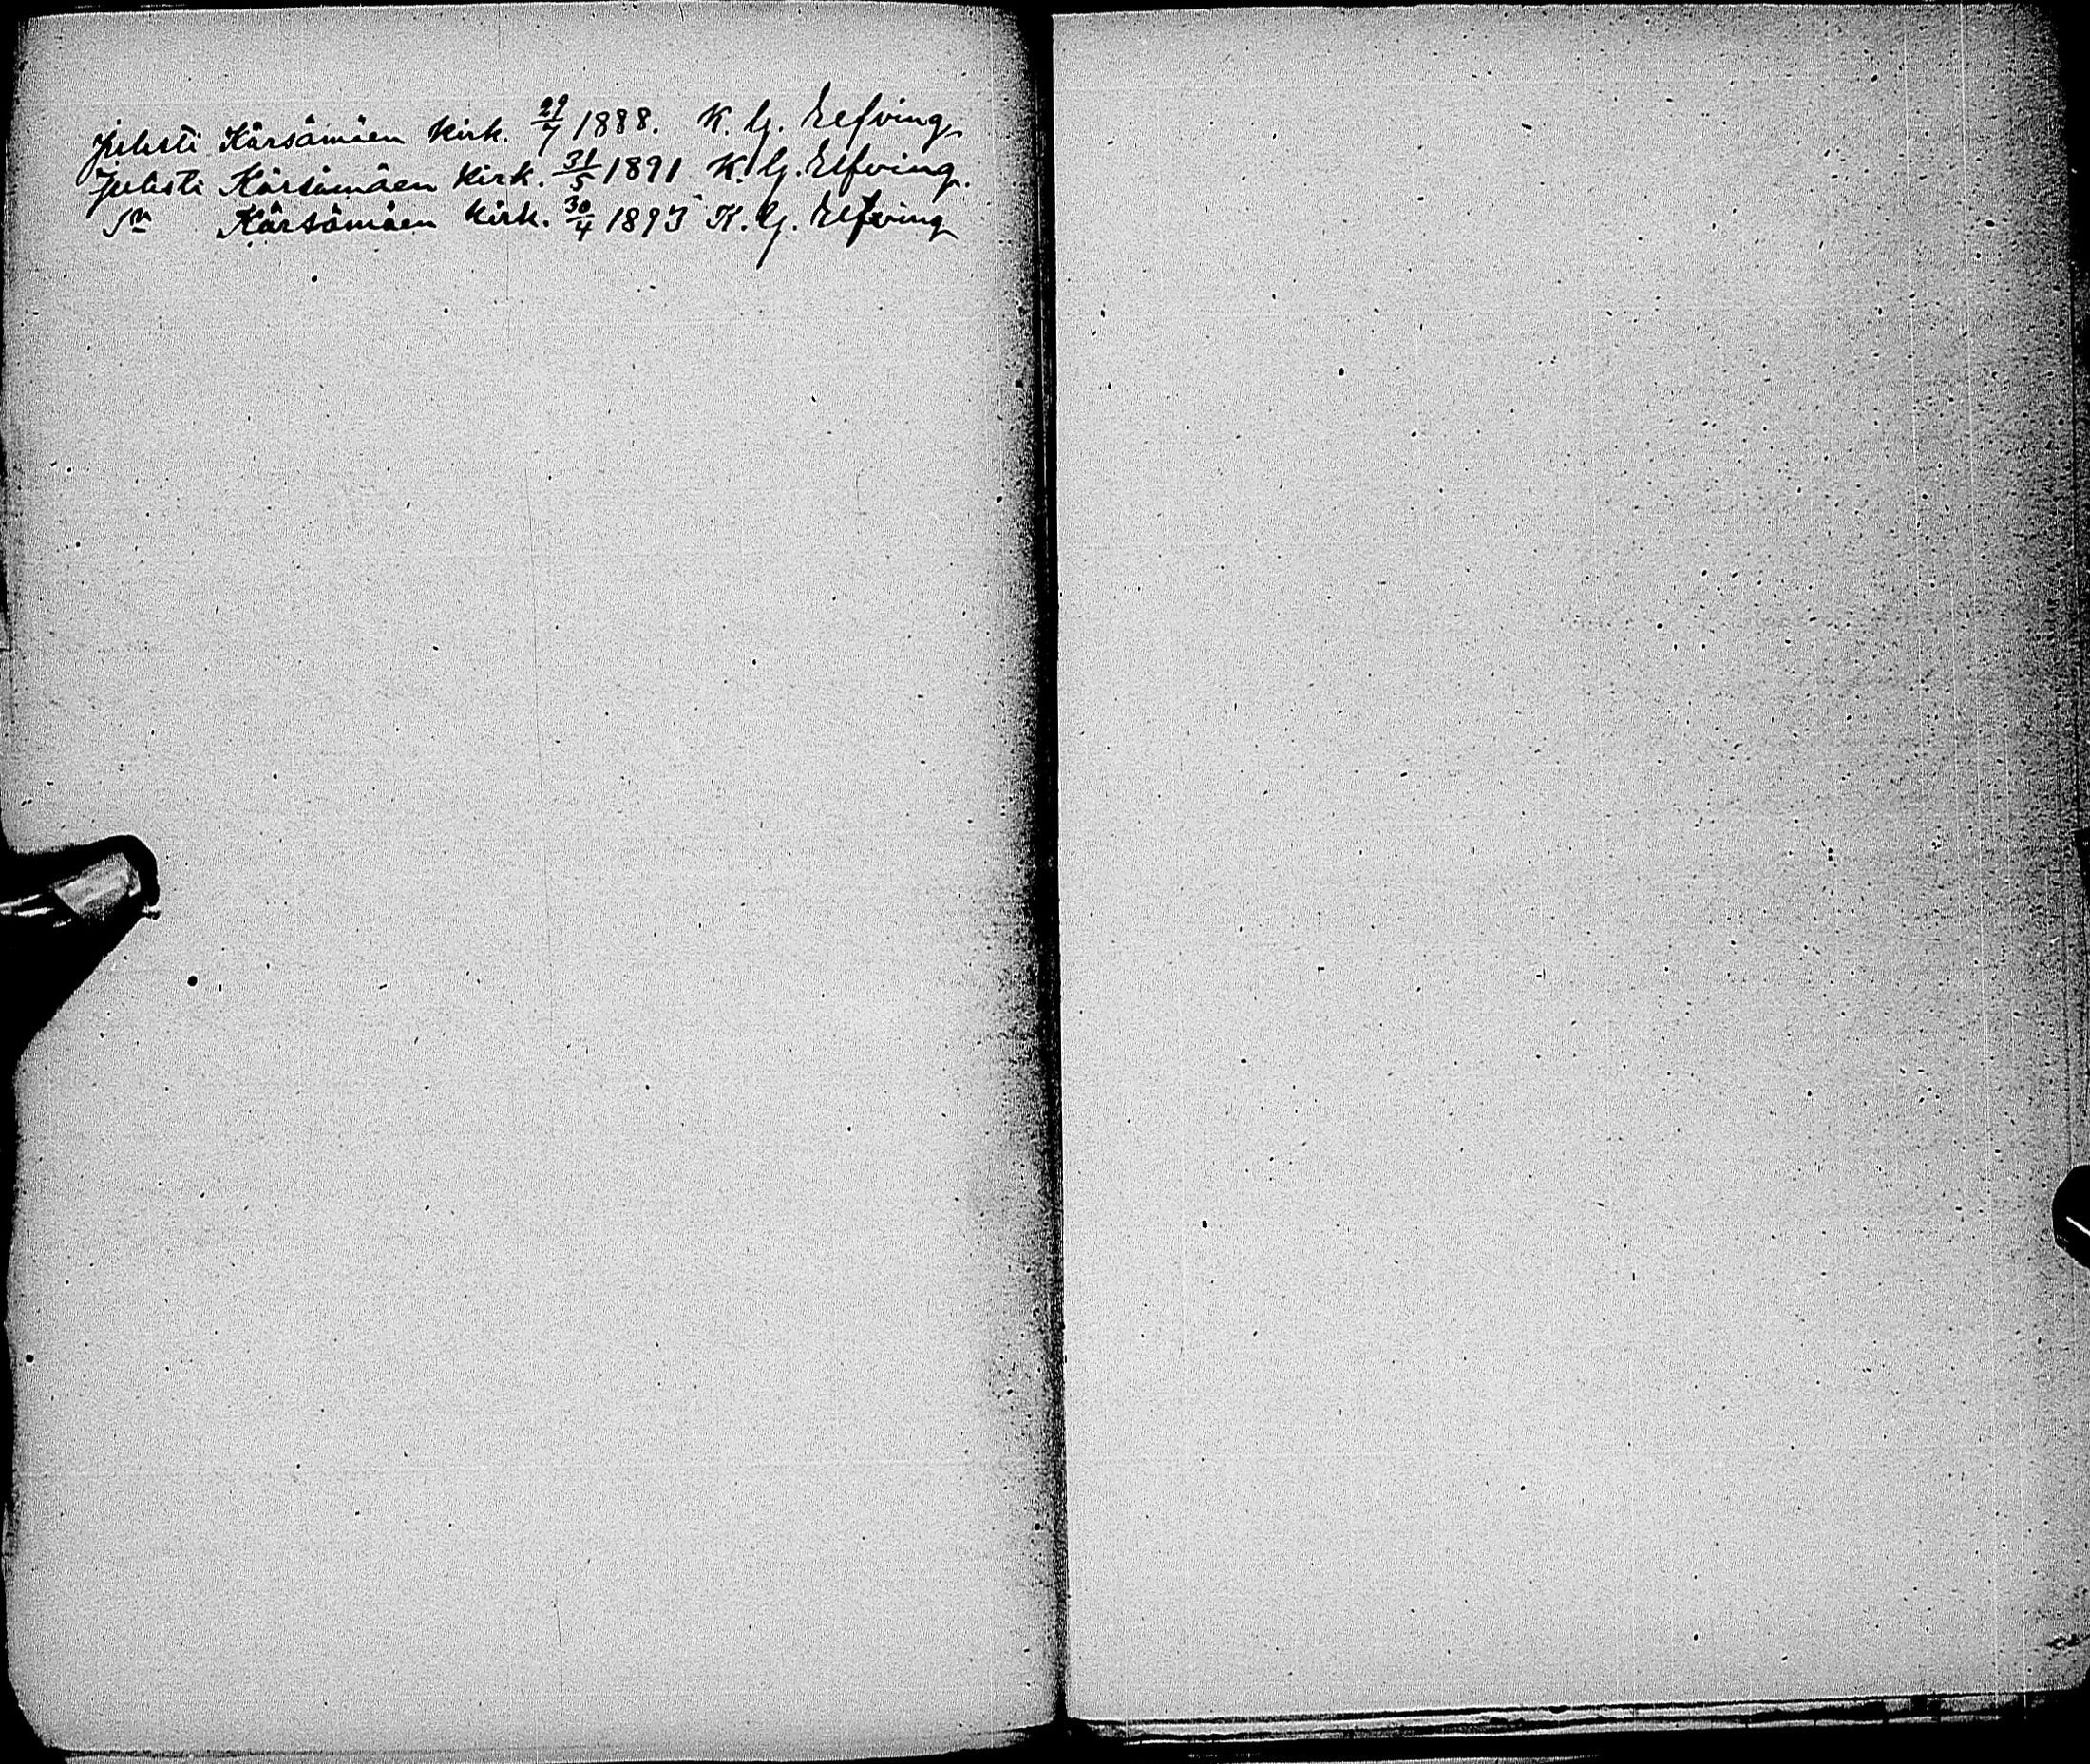 Julisti Kärsämäen kirk. 29/7 1888. K. G. Elfving
Julisti Kärsämäen kirk. 31/5 1891 K. G. Elfving.
Sn Kärsämäen kirk. 30/4 1893 K. G. Elfving